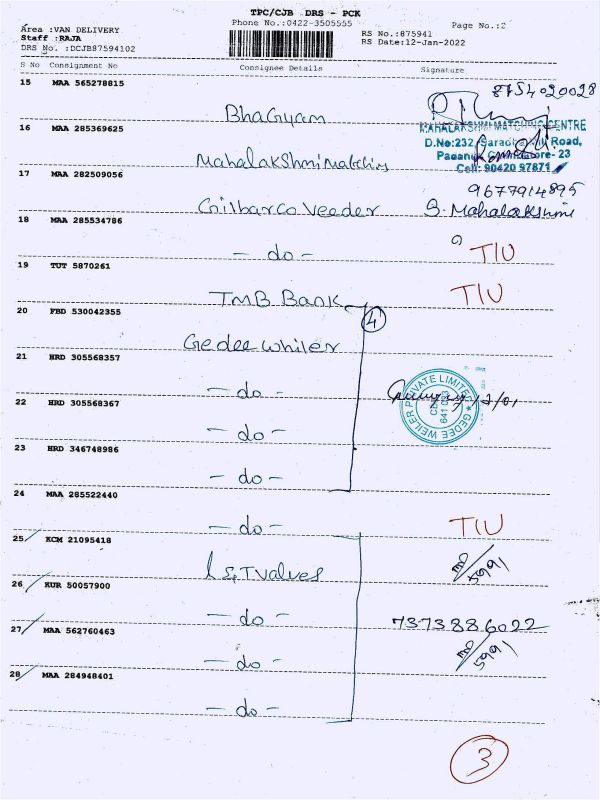 TPC/CJB DRS - PCK
Area :VAN DELIVERY
Phone No.:0422-3505555
Page No.:2
Staff :RAJA
RS No.:875941
DRS No. :DCJB87594102
RS Date:12-Jan-2022
S No Consignment No Consignee Details Signature
15 MAA 565278815
8754020028
Bhagyam
16 MAA 285369625
MAHALAKSHMI MATCHING CENTRE
D.No:232, Road,
Mahalakshmi Matching
- 23
Cell: 90420 97871
17 MAA 282509056
9677914895
Gilbarco Veeder S. Mahalakshmi
18 MAA 285534786
- do - TIU
19 TUT 5870261
TMB Bank TIU
20 FBD 530042355
4
Gedee Whiler
21 HRD 305568357
- do -
GEDEE WEILER PRIVATE LIMITED
641 033
22 HRD 305568367
- do -
23 HRD 346748986
- do -
24 MAA 285522440
- do - TIU
25 KCM 21095418
L&T Valves
5991
26 KUR 50057900
- do - 7373886022
27 MAA 562760463
- do -
5991
28 MAA 284948401
- do -
3